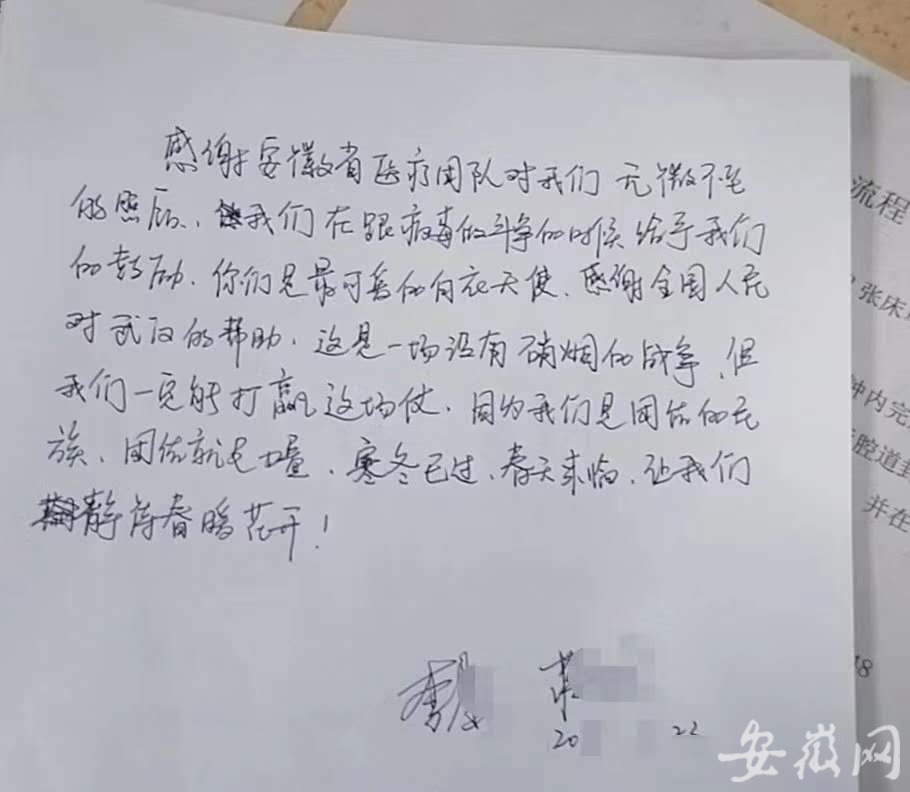 感谢安徽省医疗团队对我们无微不至
的照顾、我们在跟病毒做斗争的时候给予我们
的鼓励.你们是最可爱的白衣天使、感谢全国人民
对武汉的帮助.这是一场没有硝烟的战争、但
我们一定能打赢这场仗.因为我们是团结的民
族、团结就是力量、寒冬已过、春天来临、让我们
静待春暖花开!
李
20 22
流程
张床
钟内完
腔道
并在
18
安徽网